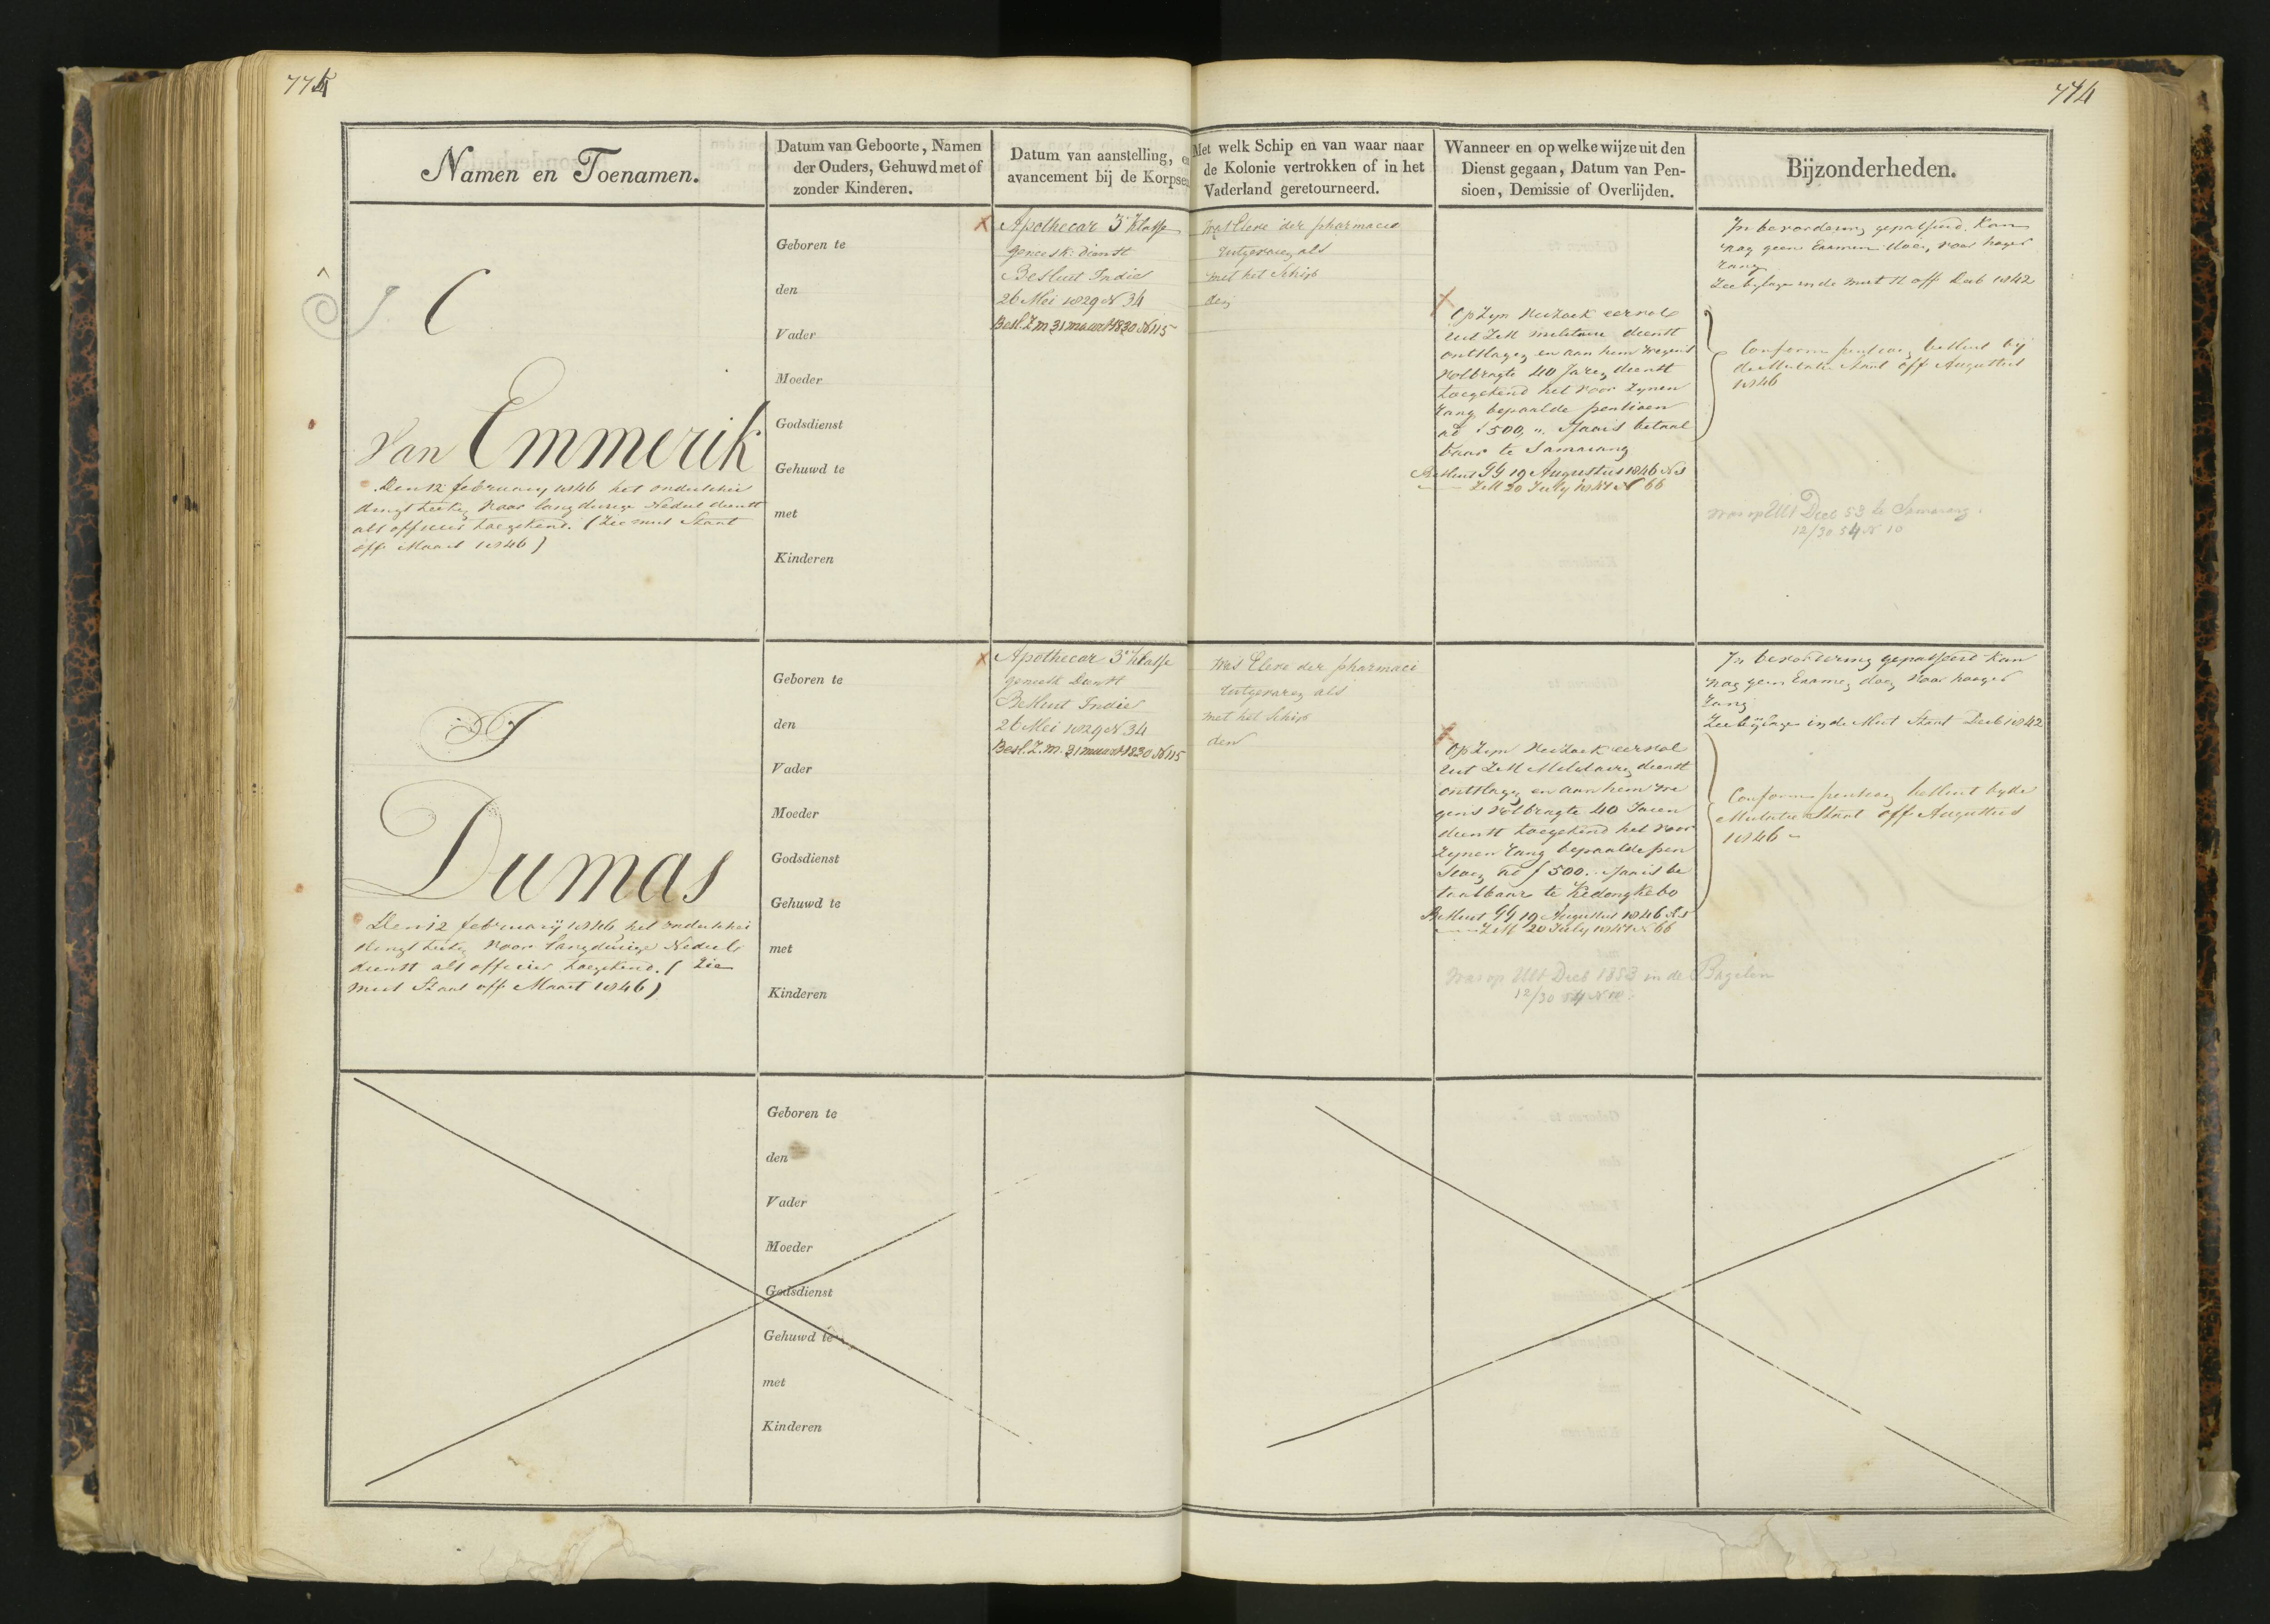 774
774
Namen en Toenamen.
Datum van Geboorte, Namen
der Ouders, Gehuwd met of
zonder Kinderen.
Datum van aanstelling, en
avancement bij de Korpsen
Met welk Schip en van waar naar
de Kolonie vertrokken of in het
Vaderland geretourneerd.
Wanneer en op welke wijze uit den
Dienst gegaan, Datum van Pen-
sioen, Demissie of Overlijden.
Bijzonderheden.
C
van Emmerik
Den 12 february 1846 het onderschei
dingsteeken voor langdurige Nederl dienst
als officier toegekend. (Zie mut Staat
off Maart 1846)
Geboren te
den
Vader
Moeder
Godsdienst
Gehuwd te
met
Kinderen
Apothecar 3e Klasse
geneesk: dienst
Besluit Indie
26 Mei 1829 N 34
Besl. Z.m 31 maart 1830 N 115
Was Eleve der pharmacie
Uitgevaren als
met het Schip
den
Op zyn verzoek eervol
uit ZM militaire dienst
ontslagen en aan hem wegens
volbragte 40 Jaren dienst
toegekend het voor zynen
rang bepaalde pensioen
ad f 500,,. sjaars betaal
baar te Samarang
Besluit GG 19 Augustus 1846 N
ZM 20 July 1847 N 66
In bevordering gepasseerd. Kan
nog geen Examen doen voor hoger
rang
Zie bylage in de mut St off Decb 1842
Conform pensioen besluit bij
de Mutatie Staat off Augustus
1846
was op Ult Decb 53 te Samarang.
12/30 54 N 10
J
Dumas
Den 12 february 1846 het onderschei
dingsteeken voor langdurige Nederl
dienst als officier toegekend. (Zie
mut Staat off Maart 1846)
Geboren te
den
Vader
Moeder
Godsdienst
Gehuwd te
met
Kinderen
Apothecar 3e Klasse
geneesk Dienst
Besluit Indie
26 Mei 1829 N 34
Besl. Z.m. 31 maart 1830 N 115
Was Eleve der pharmaci
Uitgevaren als
met het Schip
den
Op zyn verzoek eervol
uit ZM Militairen dienst
ontslagen en aan hem we
gens volbragte 40 Jaren
dienst toegekend het voor
zynen rang bepaalde pen
sioen ad f 500. sjaars be
taalbaar te Kedongkebo
Besluit GG 19 Augustus 1846 N
ZM 20 July 1847 N 66
In bevordering gepasseerd Kan
nog geen Examen doen voor hooger
rang
Zie bijlage in de Mut Staat Decb 1842
Conform pensioen besluit by de
Mutatie Staat off Augustus
1846
was op Ult Decb 1853 in de Bagelen
12/30 54 N 10
Geboren te
den
Vader
Moeder
Godsdienst
Gehuwd te
met
Kinderen